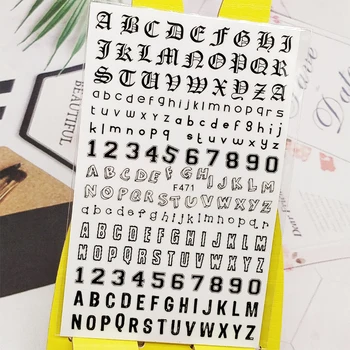 ABCDEFGHI
JKLMNOPQR
STUVWXYZA
abcdefghijklmnopqrs
tuvwxyzabcdefghij
klmnopq stuvwxyz
1234567890
ABCDEFGHIJKLM
F471
NOPQRSTUVWXYZ
abcdefghijklmnopqr
ABCDEFGHIJKLM
NOPQRSTUVWXYZ
1234567890
ABCDEFGHIJKLM
NOPQRSTUVWXYZ
BEAUTIFUL
Love
Date